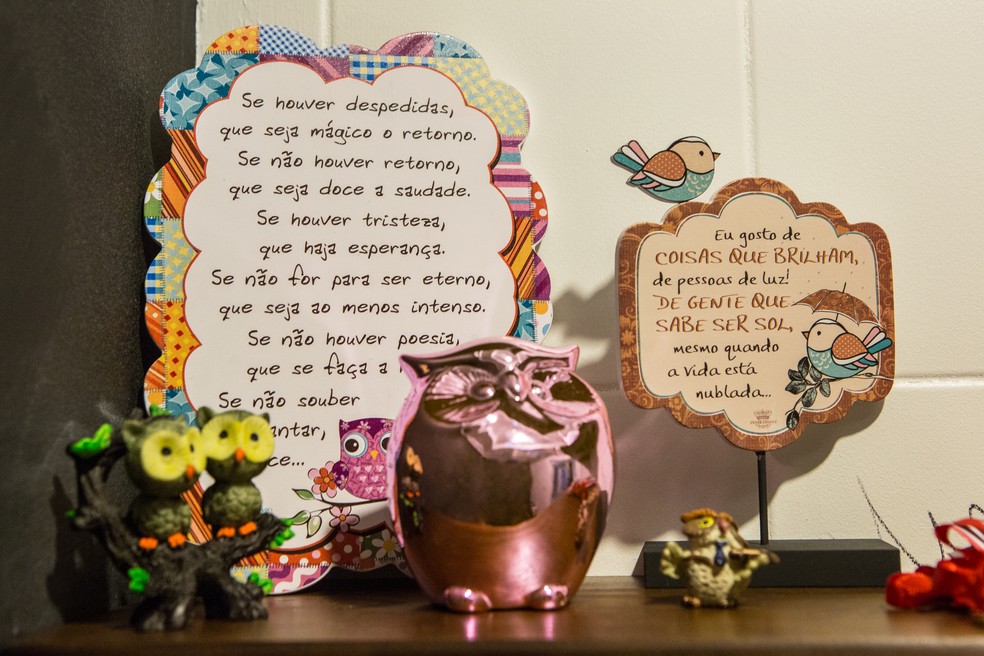 Se houver despedidas,
que seja mágico o retorno.
Se não houver retorno,
que seja doce a saudade.
Se houver tristeza,
que haja esperança.
Se não for para ser eterno,
que seja ao menos intenso.
Se não houver poesia,
que se faça a
Se não souber
antar,
ce...
Eu gosto de
COISAS QUE BRILHAM,
de pessoas de luz!
DE GENTE QUE
SABE SER SOL,
mesmo quando
a vida está
nublada...